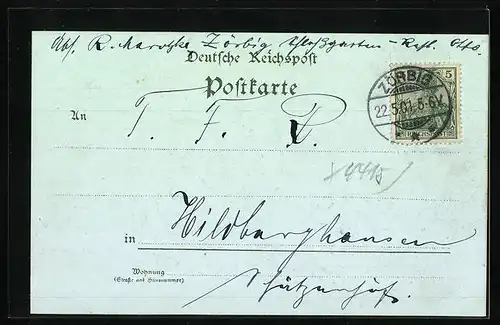 Abs. R. Marotzke Zörbig Schloßgarten-Rest. Otto.
Deutsche Reichspost
Postkarte
ZÖRBIG
5
22.5.01. 5-6N.
REICHSPOST
An T. F. P.
in Hildburghausen
Wohnung
(Straße und Hausnummer)
Schützenhof.